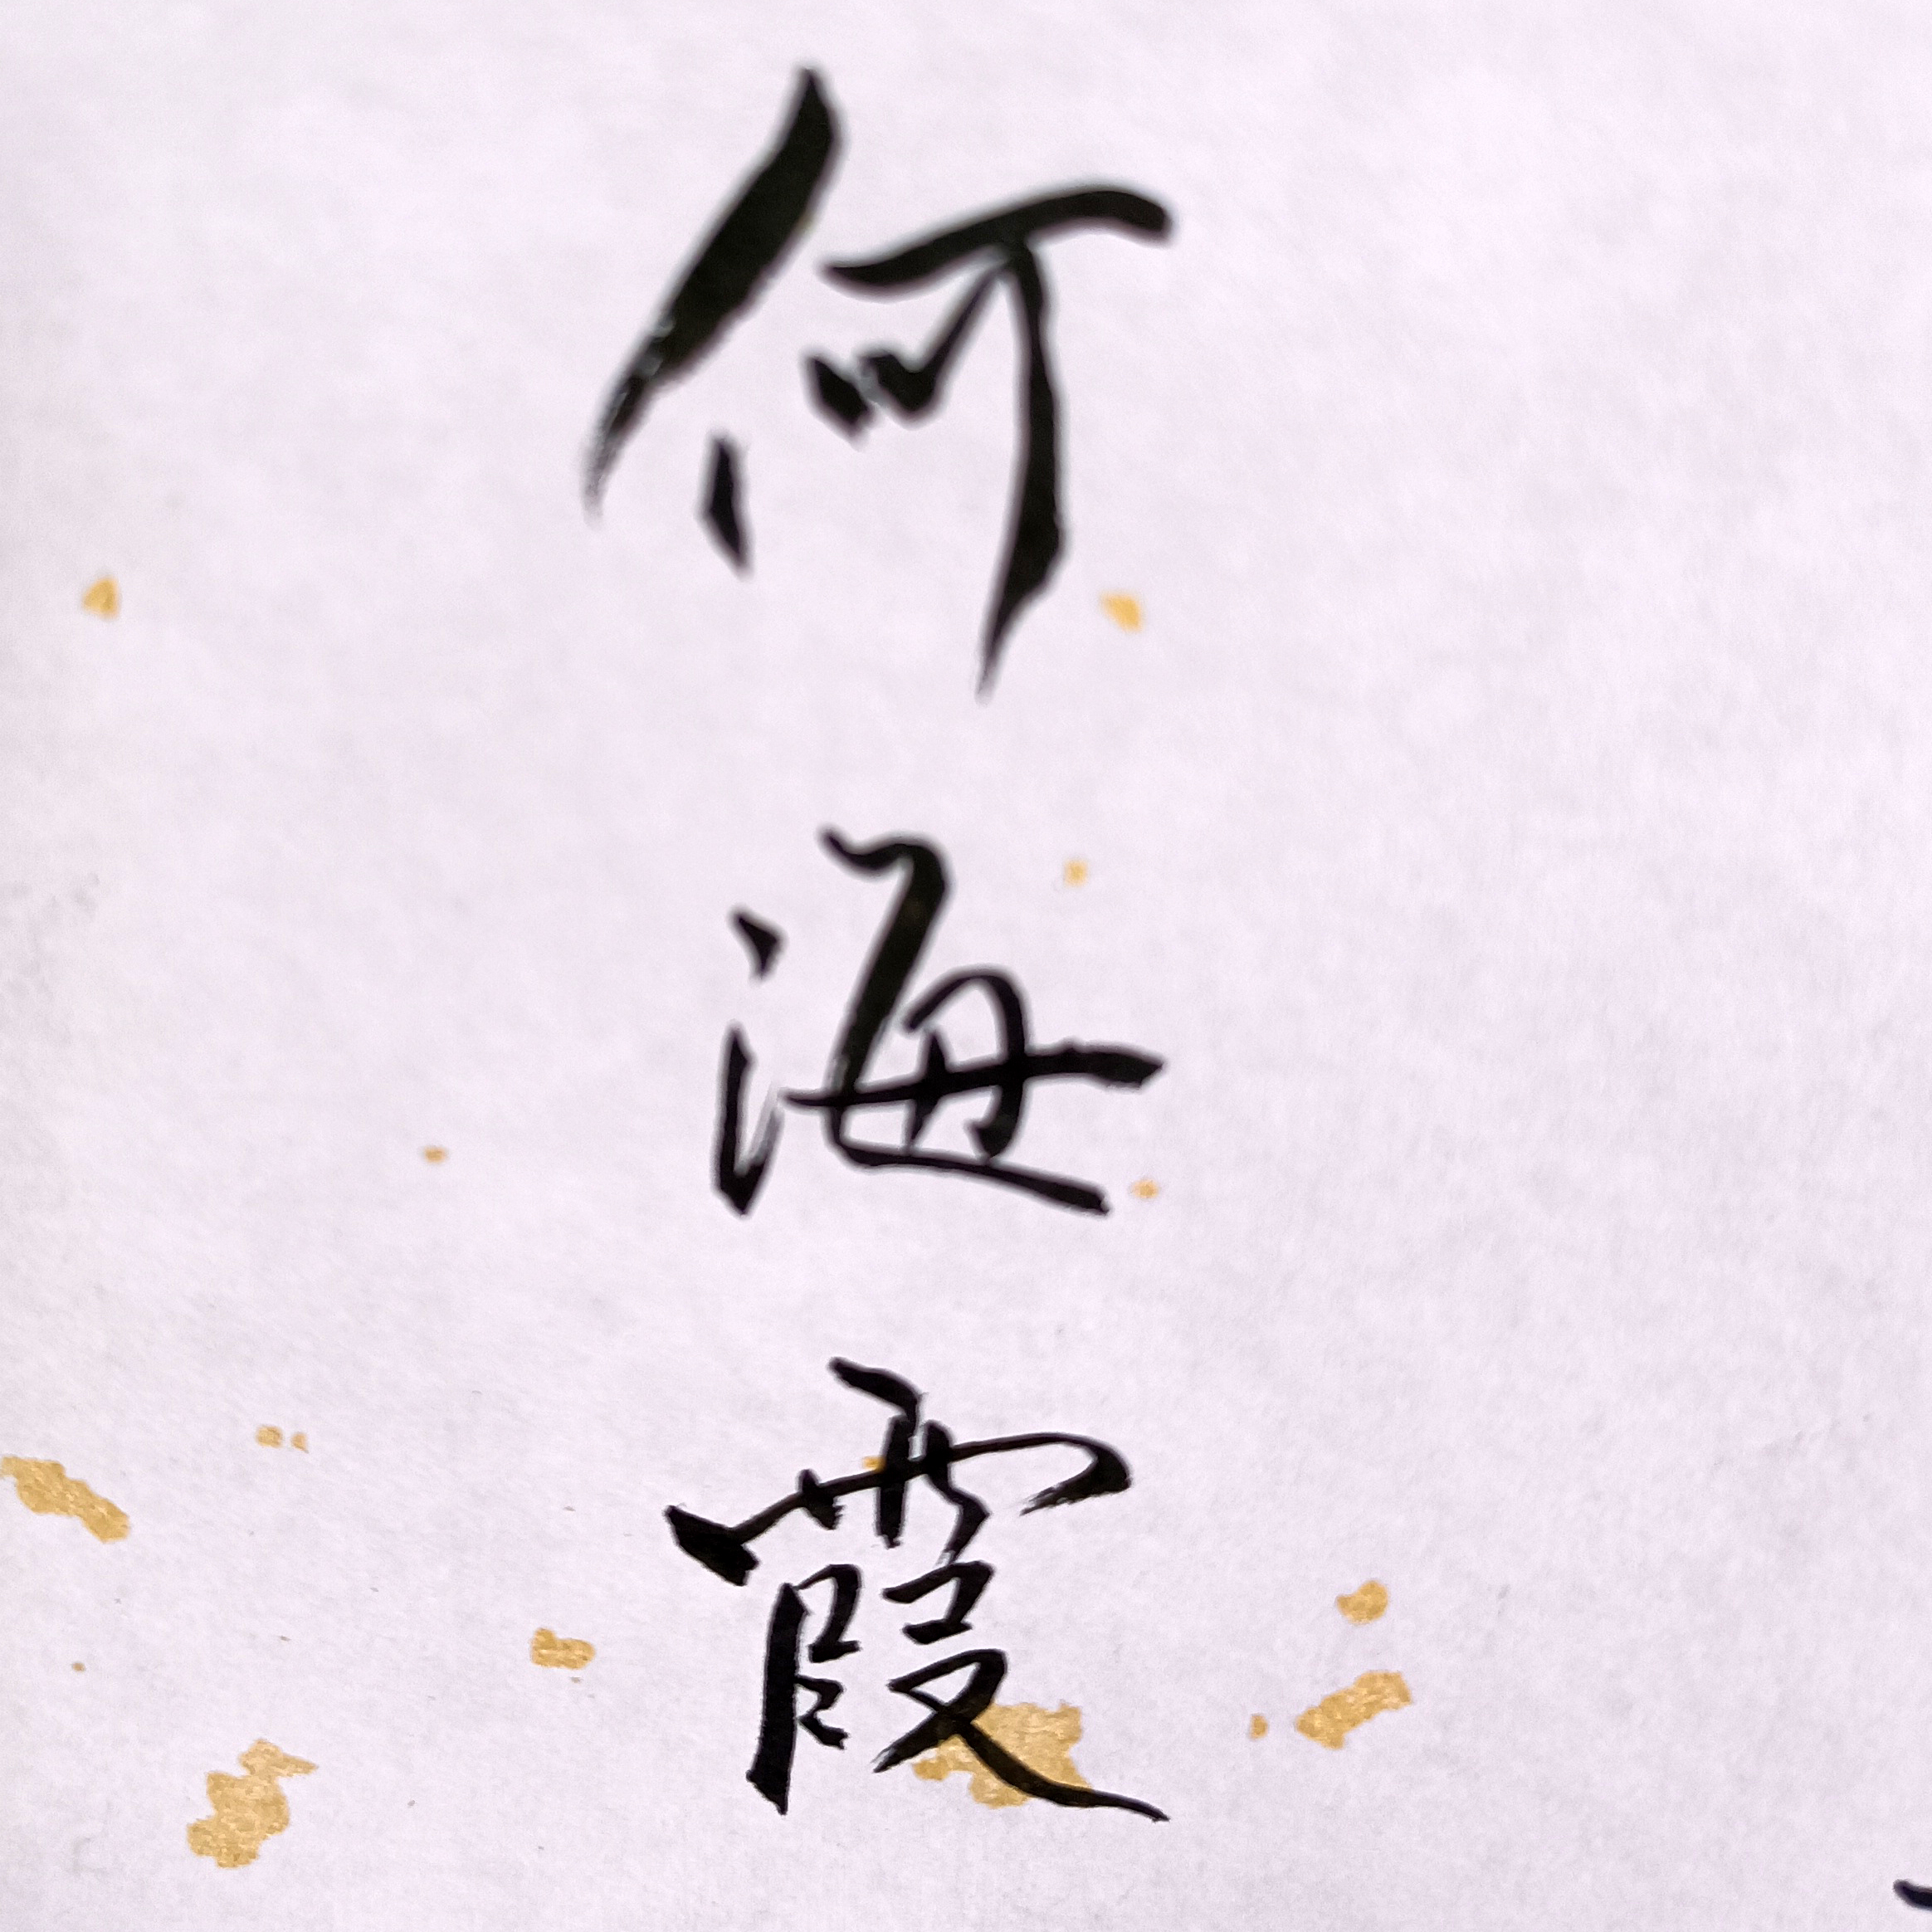 何海霞